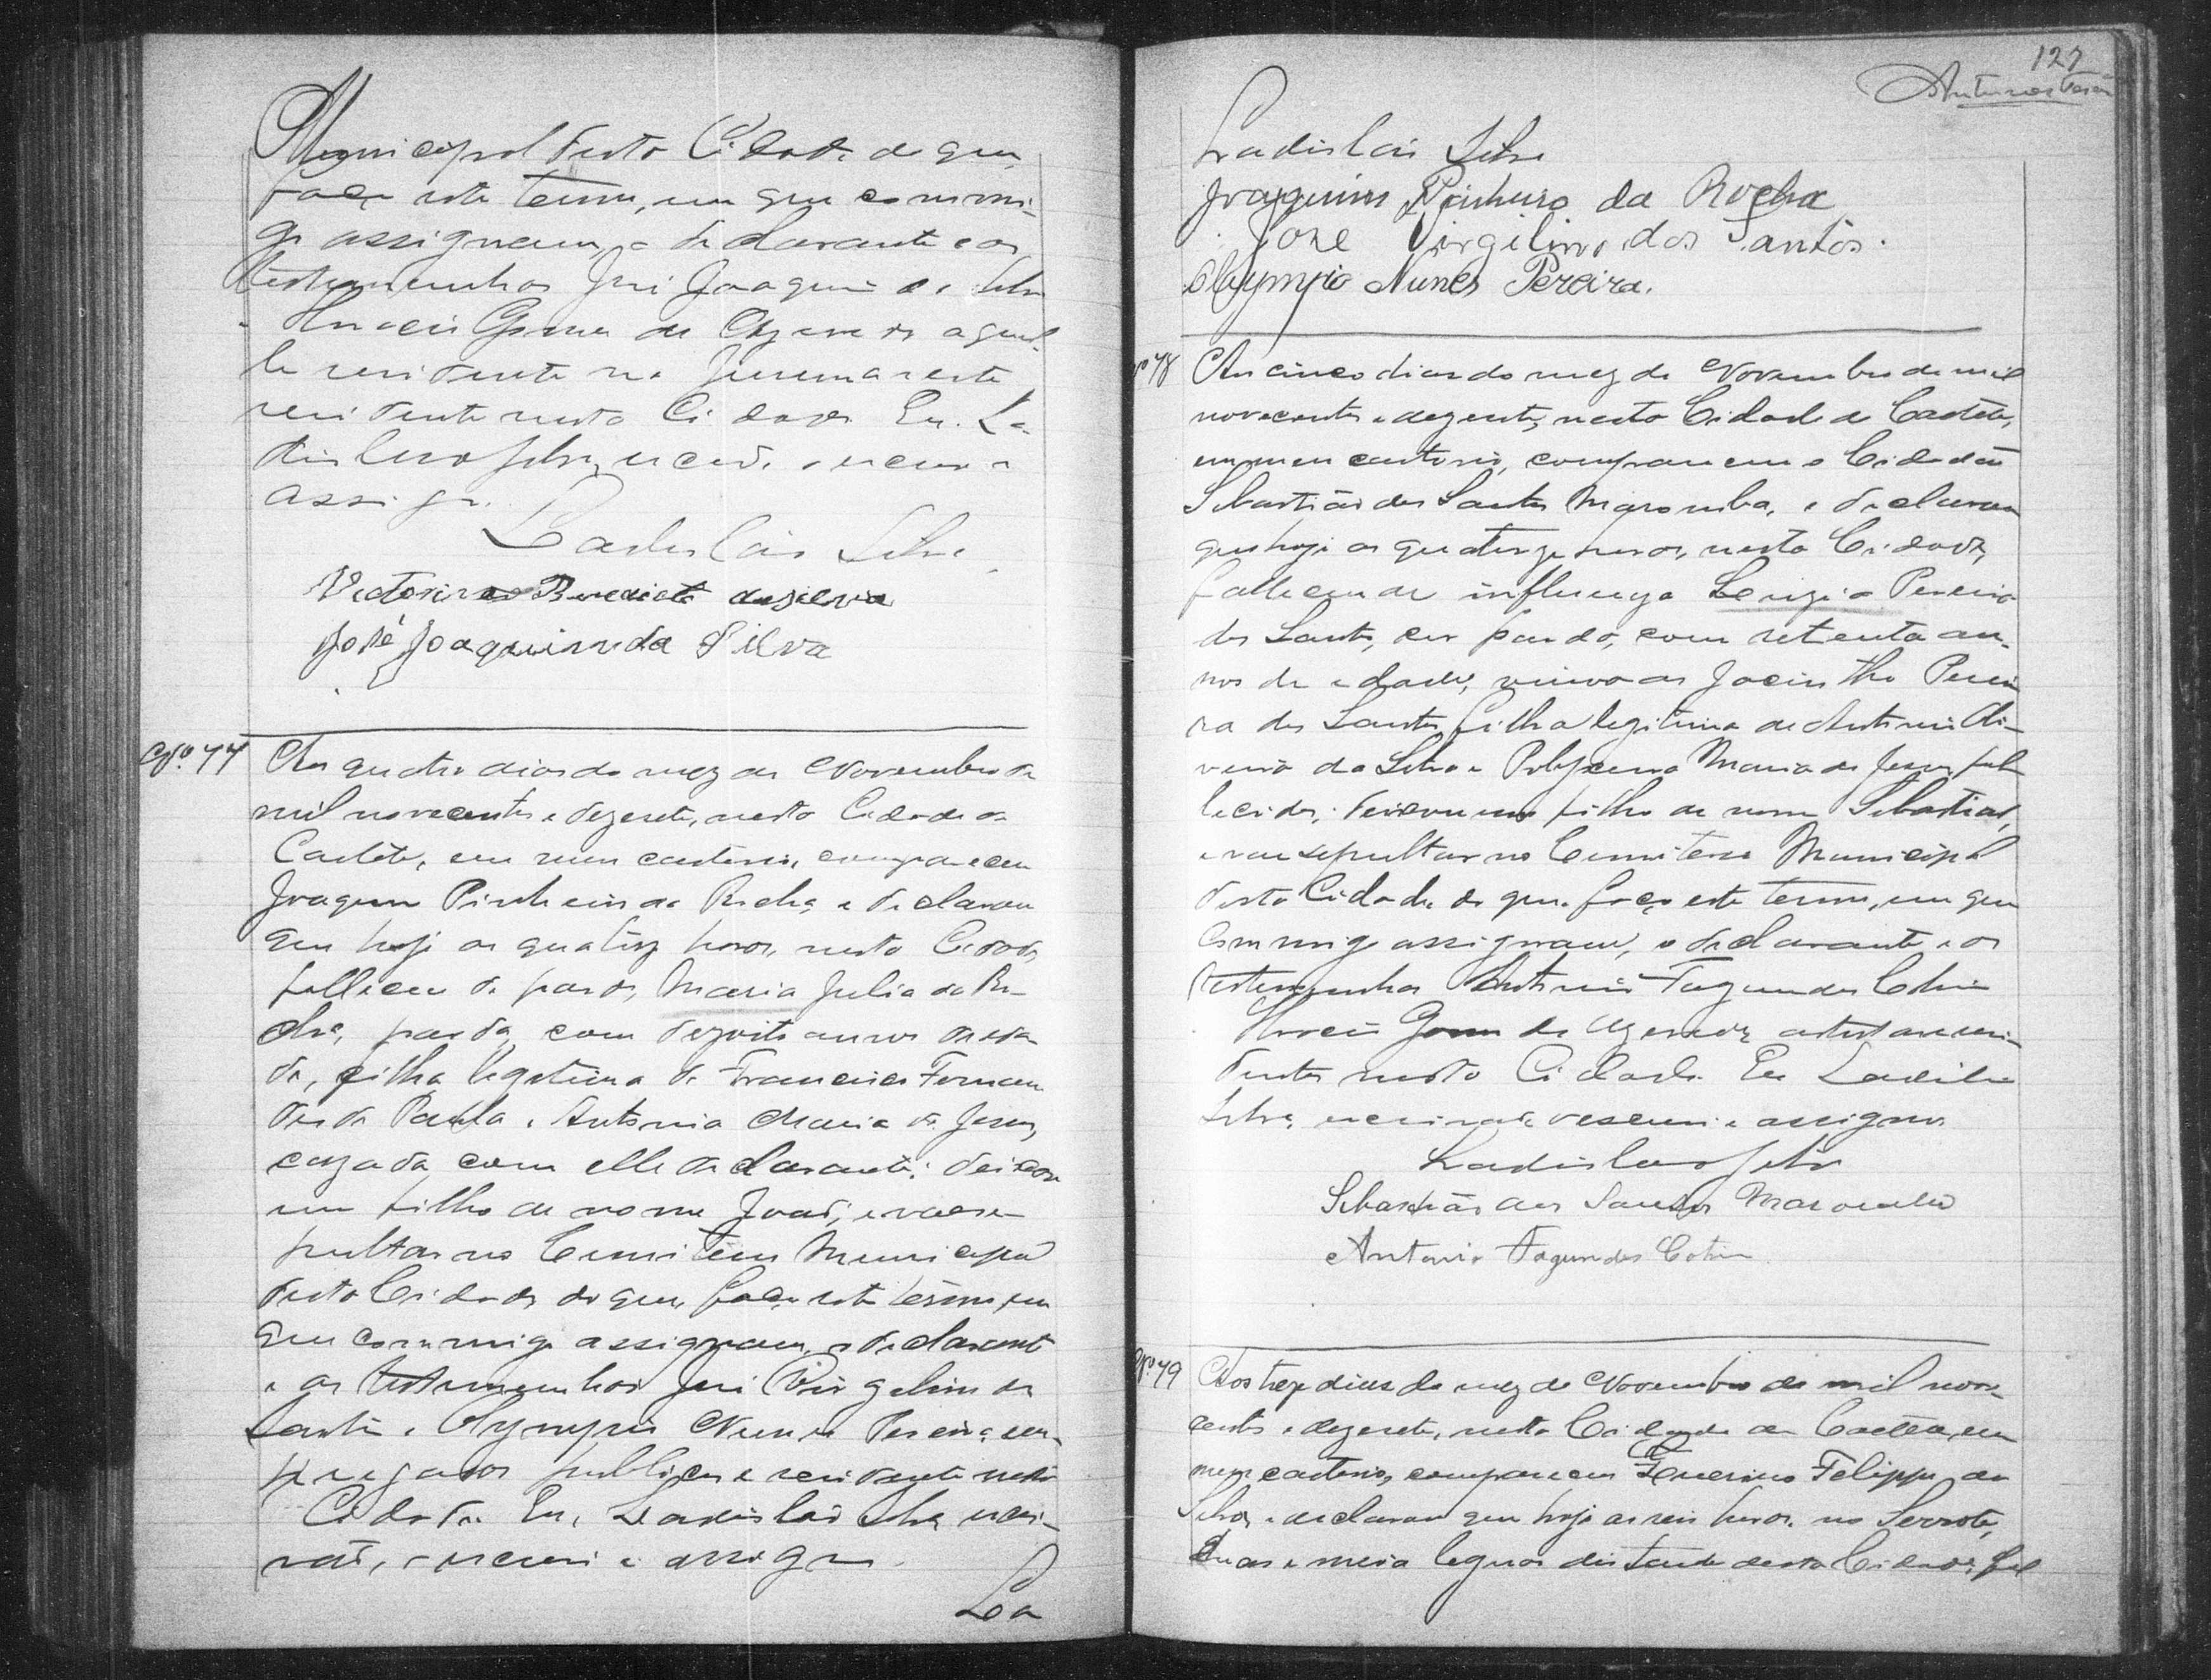 Municipal desta Cidade de que
faço este termo, em que commi-
go assignam, o declarante e as
testemunhas José Joaquim da Silva
e Horacio Gomes de Azevedo aquel-
le residente na Jurema e este
residente nesta Cidade. Eu, La-
disláo Silva, escrivão, escrevi e
assigno.
Ladisláo Silva
Victorino Benedicto da Silva
José Joaquim da Silva
Nº. 77 Aos quatro dias do mez de Novembro de
mil novecentos e dezesete, nesta Cidade de
Caeteté, em meu cartorio, compareceu
Joaquim Pinheiro da Rocha e declarou
que hoje as quatorze horas, nesta Cidade,
falleceu de parto, Maria Julia da Ro-
cha, parda, com dezoito annos de eda-
de, filha legitima de Francisco Fernan-
des de Paula e Antonia Maria de Jesus,
cazada com elle declarante: deixou
um filho de nome João, e vae se
pultar no Cemiterio Municipal
desta Cidade do que, faço este termo, em
que commigo assignam, o declarante
e as testemunhas José Virgelino dos
Santos e Olympio Nunes Pereira em-
pregados publicos e residentes nesta
Cidade. Eu, Ladisláo Silva, escri-
vão, o escrevi e assigno.
La
127
Ladisláo Silva
Joaquim Pinheiro da Rocha
José Virgilino dos Santos.
Olympio Nunes Pereira.
Nº 78 Aos cinco dias do mez de Novembro de mil
novecentos e dezesete, nesta Cidade de Caeteté,
em meu cartorio, compareceu o Cidadão
Sebastião dos Santos Maromba, e declarou
que hoje as quatorze horas, nesta Cidade,
falleceu de influenza Luzia Pereira
dos Santos, cor parda, com setenta an-
nos de edade, viuva de Jacintho Perei
ra dos Santos, filha legitima de Antonio Oli-
veira da Silva e Polyxena Maria de Jesus, fal-
lecidos; deixou um filho de nome Sebastião,
e vae sepultar no Cemiterio Municipal
desta Cidade de que faço este termo, em que
commigo assignam, o declarante e as
testemunhas Antonio Fagundes Cotrim
e Horacio Gomes de Azevedo, artistas e resi-
dentes nesta Cidade. Eu Ladisláo
Silva, escrivão o escrevi e assigno.
Ladisláo Silva
Sebastião dos Santos Maromba
Antonio Fagundes Cotrim
Nº 79 Aos treze dias do mez de Novembro de mil nove-
centos e dezesete, nesta Cidade de Caeteté, em
meu cartorio, compareceu Felippe da
Silva, e declarou que hoje as seis horas, no Serrote,
duas e meia leguas distante desta Cidade, fal